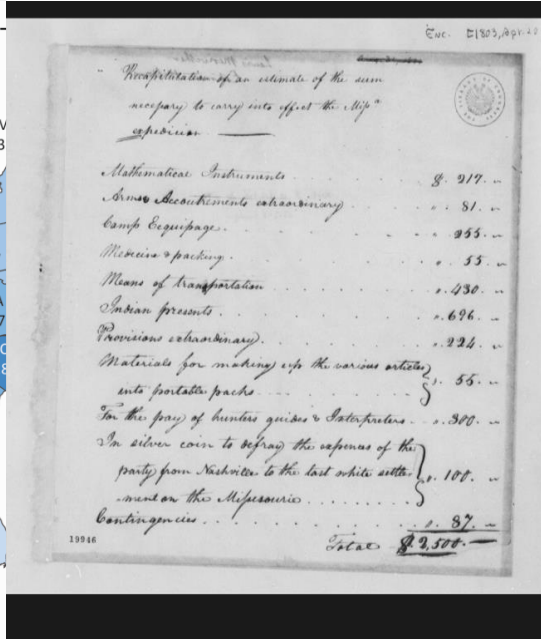 Enc. E1803, Apr. 20
" Recapitulation of an estimate of the sum
necessary to carry into effect the Missie
expedicion ———
Mathematical Instruments . . . . . $. 217. "
Arms & Accoutrements extraordinary . . . . " 81. "
Camp Ecquipage . . . . . . " 255. "
Medecine & packing . . . . . . " 55. "
Means of transportation . . . . . " 430. "
Indian presents . . . . . . " 696. "
Provisions extraordinary . . . . . " 224. "
Materials for making up the various articles
into portable packs . . . . . } " 55. "
For the pay of hunters guides & Interpreters . . " 300. "
In silver coin to defray the expences of the
party from Nashville to the last white settle-
ment on the Missourie . . . . . . } " 100. "
Contingencies . . . . . . . . " 87. "
Total $. 2,500. —
19946